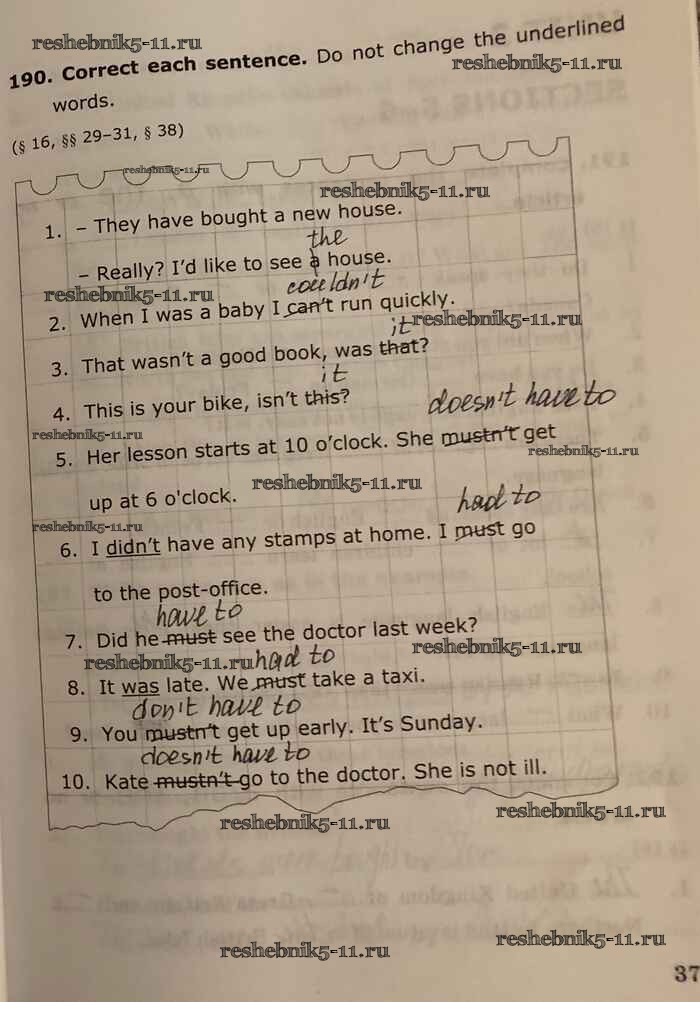 reshebnik5-11.ru
190. Correct each sentence. Do not change the underlined
reshebnik5-11.ru
words.
(§ 16, §§ 29–31, § 38)
reshebnik5-11.ru
reshebnik5-11.ru
1. – They have bought a new house.
the
– Really? I'd like to see a house.
reshebnik5-11.ru
couldn't
2. When I was a baby I can't run quickly.
reshebnik5-11.ru
it
3. That wasn't a good book, was that?
it
4. This is your bike, isn't this?
doesn't have to
reshebnik5-11.ru
5. Her lesson starts at 10 o'clock. She mustn't get
reshebnik5-11.ru
up at 6 o'clock.
reshebnik5-11.ru
had to
reshebnik5-11.ru
6. I didn't have any stamps at home. I must go
to the post-office.
have to
7. Did he must see the doctor last week?
reshebnik5-11.ru
reshebnik5-11.ru
had to
8. It was late. We must take a taxi.
don't have to
9. You mustn't get up early. It's Sunday.
doesn't have to
10. Kate mustn't go to the doctor. She is not ill.
reshebnik5-11.ru
reshebnik5-11.ru
reshebnik5-11.ru
reshebnik5-11.ru
37